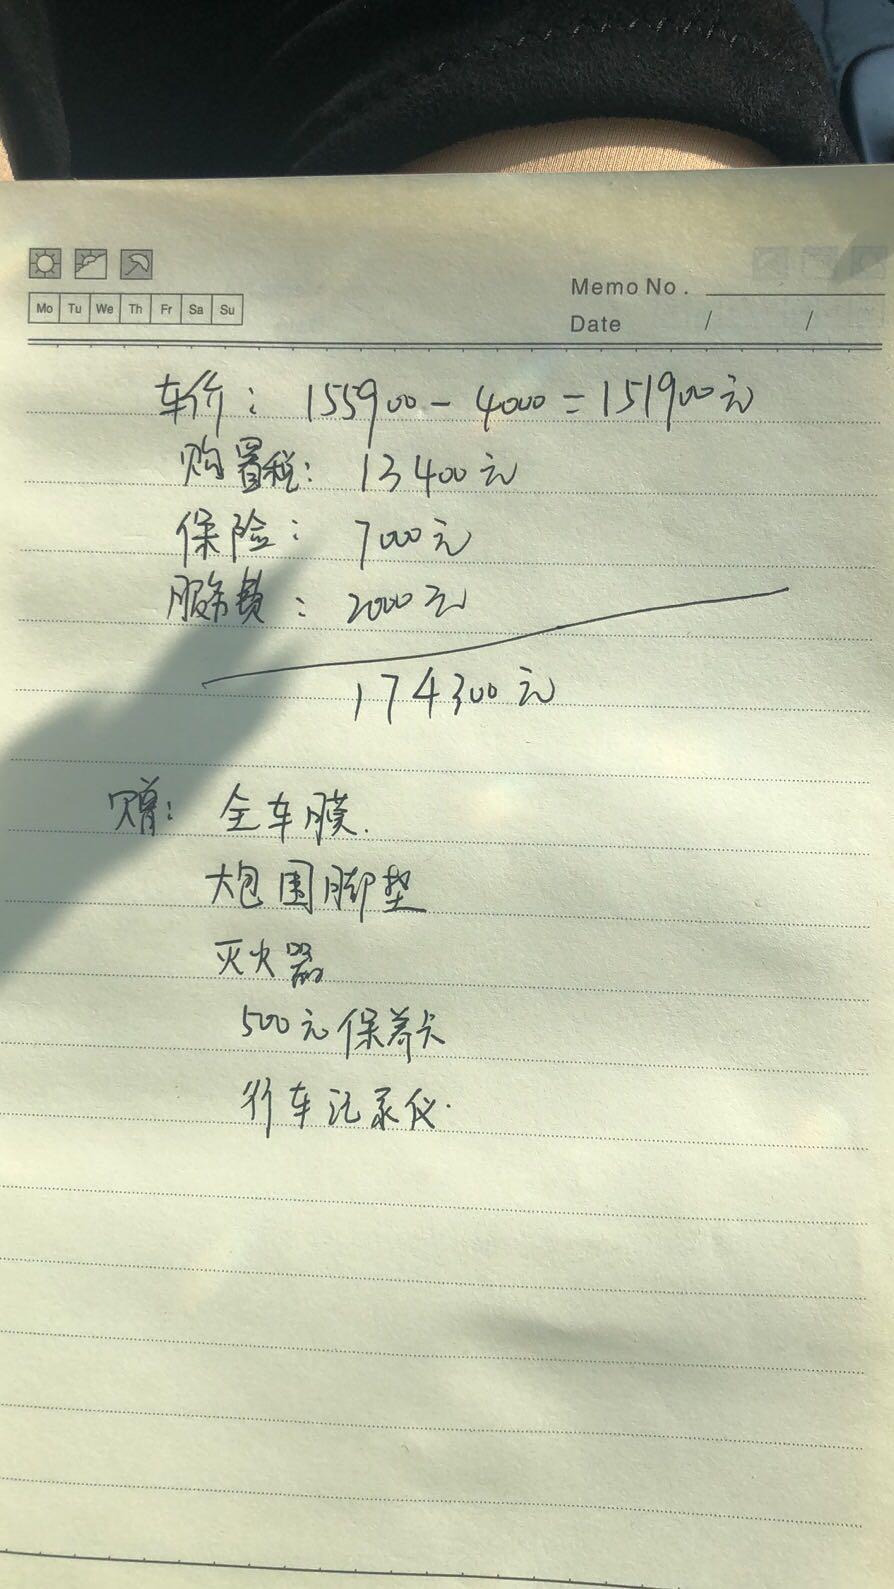 Mo Tu We Th Fr Sa Su
Memo No.
Date / /
车价: 155900-4000=151900元
购置税: 13400元
保险: 7000元
服务费: 2000元
174300元
赠: 全车膜.
大包围脚垫
灭火器
500元保养卡
行车记录仪.